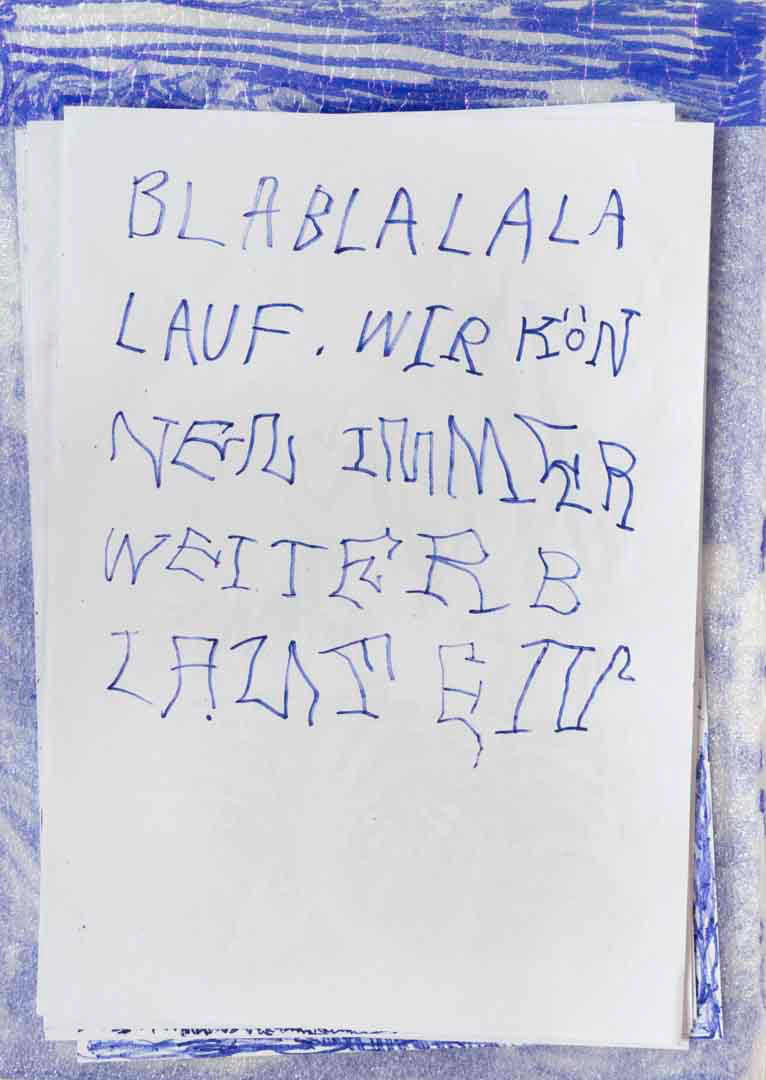 BLABLALALA
LAUF. WIR KÖN
NEN IMMER
WEITER B
LAUF EIN